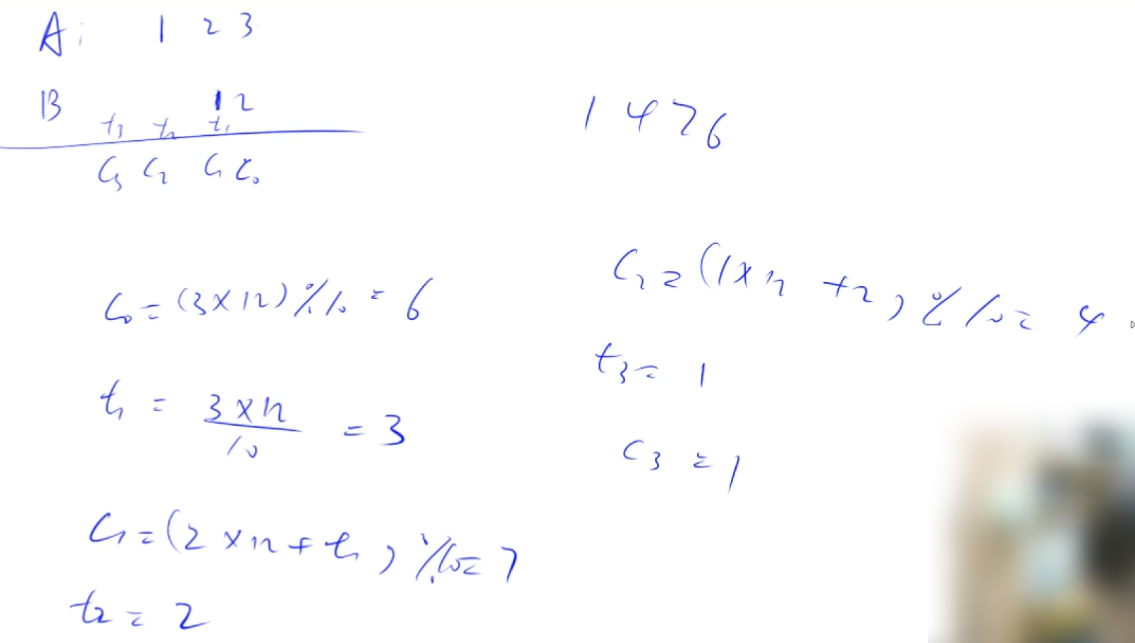 A: 1 2 3
B 1 2
t3 t2 t1
C3 C2 C1 C0
1 4 7 6
C0 = (3×12) % 10 = 6
t1 = 3×12 / 10 = 3
C1 = (2×12 + t1) % 10 = 7
t2 = 2
C2 = (1×12 + 2) % 10 = 4
t3 = 1
C3 = 1